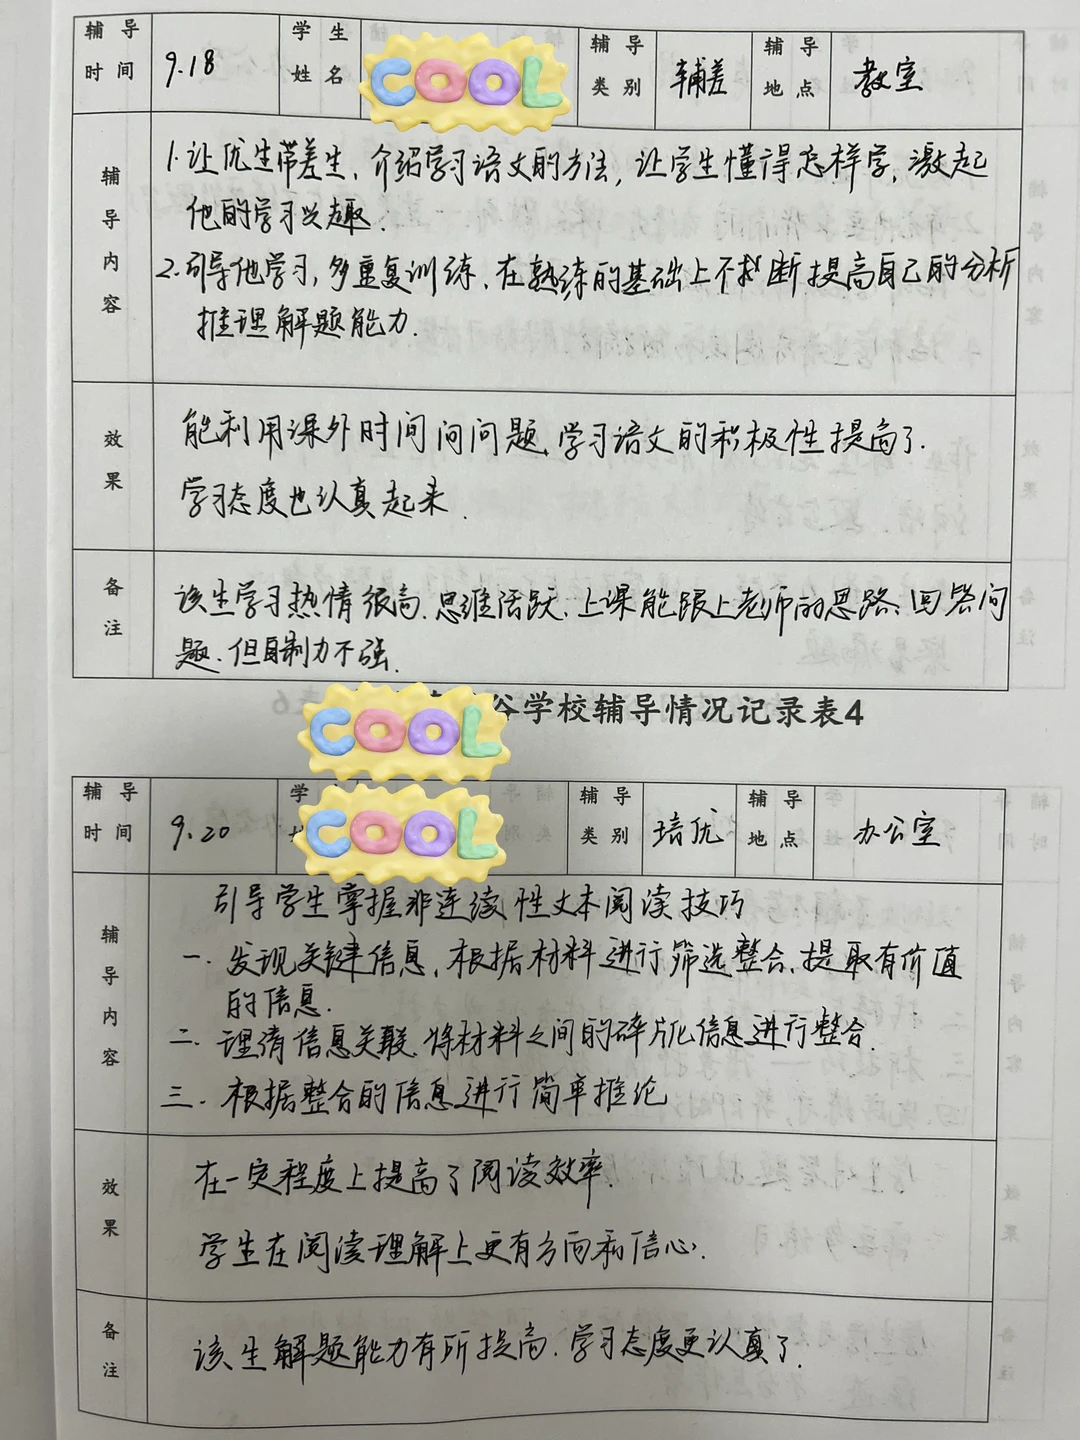 辅导时间 9.18 学生姓名 COOL 辅导类别 辅差 辅导地点 教室
辅导内容
1.让优生带差生,介绍学习语文的方法,让学生懂得怎样学,激起
他的学习兴趣.
2.引导他学习,多重复训练,在熟练的基础上不断提高自己的分析
推理解题能力.
效果
能利用课外时间问问题,学习语文的积极性提高了.
学习态度也认真起来.
备注
该生学习热情很高,思维活跃,上课能跟上老师的思路,回答问
题,但自制力不强.
COOL 谷学校辅导情况记录表4
辅导时间 9.20 学 COOL 辅导类别 培优 辅导地点 办公室
辅导内容
引导学生掌握非连续性文本阅读技巧
一.发现关键信息,根据材料进行筛选整合,提取有价值
的信息.
二.理清信息关联,将材料之间的碎片化信息进行整合.
三.根据整合的信息进行简单推论
效果
在一定程度上提高了阅读效率.
学生在阅读理解上更有方向和信心.
备注
该生解题能力有所提高,学习态度更认真了.